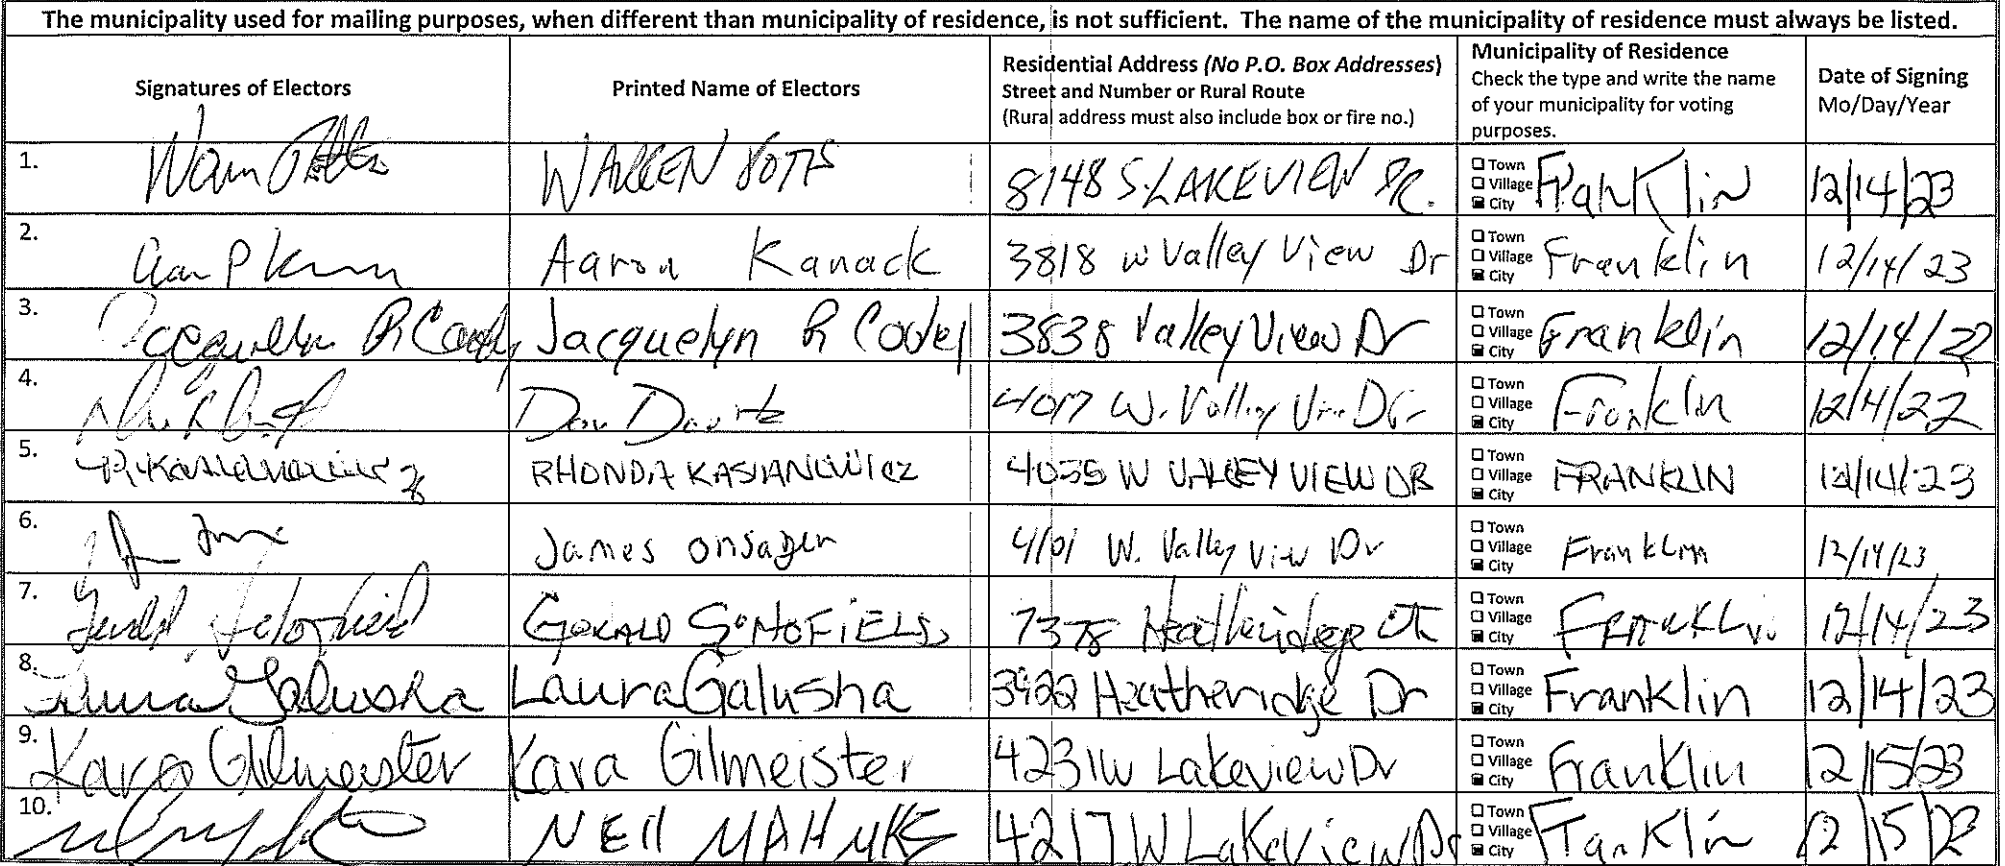 The municipality used for mailing purposes, when different than municipality of residence, is not sufficient. The name of the municipality of residence must always be listed.
Signatures of Electors
Printed Name of Electors
Residential Address (No P.O. Box Addresses)
Street and Number or Rural Route
(Rural address must also include box or fire no.)
Municipality of Residence
Check the type and write the name
of your municipality for voting
purposes.
Date of Signing
Mo/Day/Year
1. WARREN 8148 S. LAKEVIEW DR. Town
Village Franklin 12/14/23
City
2. Aaron Kanack 3818 W Valley View Dr Town
Village Franklin 12/14/23
City
3. Jacquelyn R Jacquelyn R 3838 Valley View Dr Town
Village Franklin 12/14/22
City
4. 4017 W. Valley View Dr. Town
Village Franklin 12/14/22
City
5. RHONDA KASIANOWICZ 4035 W VALLEY VIEW DR Town
Village FRANKLIN 12/14/23
City
6. James Onsager 4101 W. Valley View Dr Town
Village Franklin 12/14/23
City
7. GERALD 7378 Heatheridge Ct Town
Village Franklin 12/14/23
City
8. Laura Galusha Laura Galusha 3922 Heatheridge Dr Town
Village Franklin 12/14/23
City
9. Kara Gilmeister Kara Gilmeister 4231 W Lakeview Dr Town
Village Franklin 12/15/23
City
10. NEIL 4217 W Lakeview Dr Town
Village Franklin 12/15/23
City